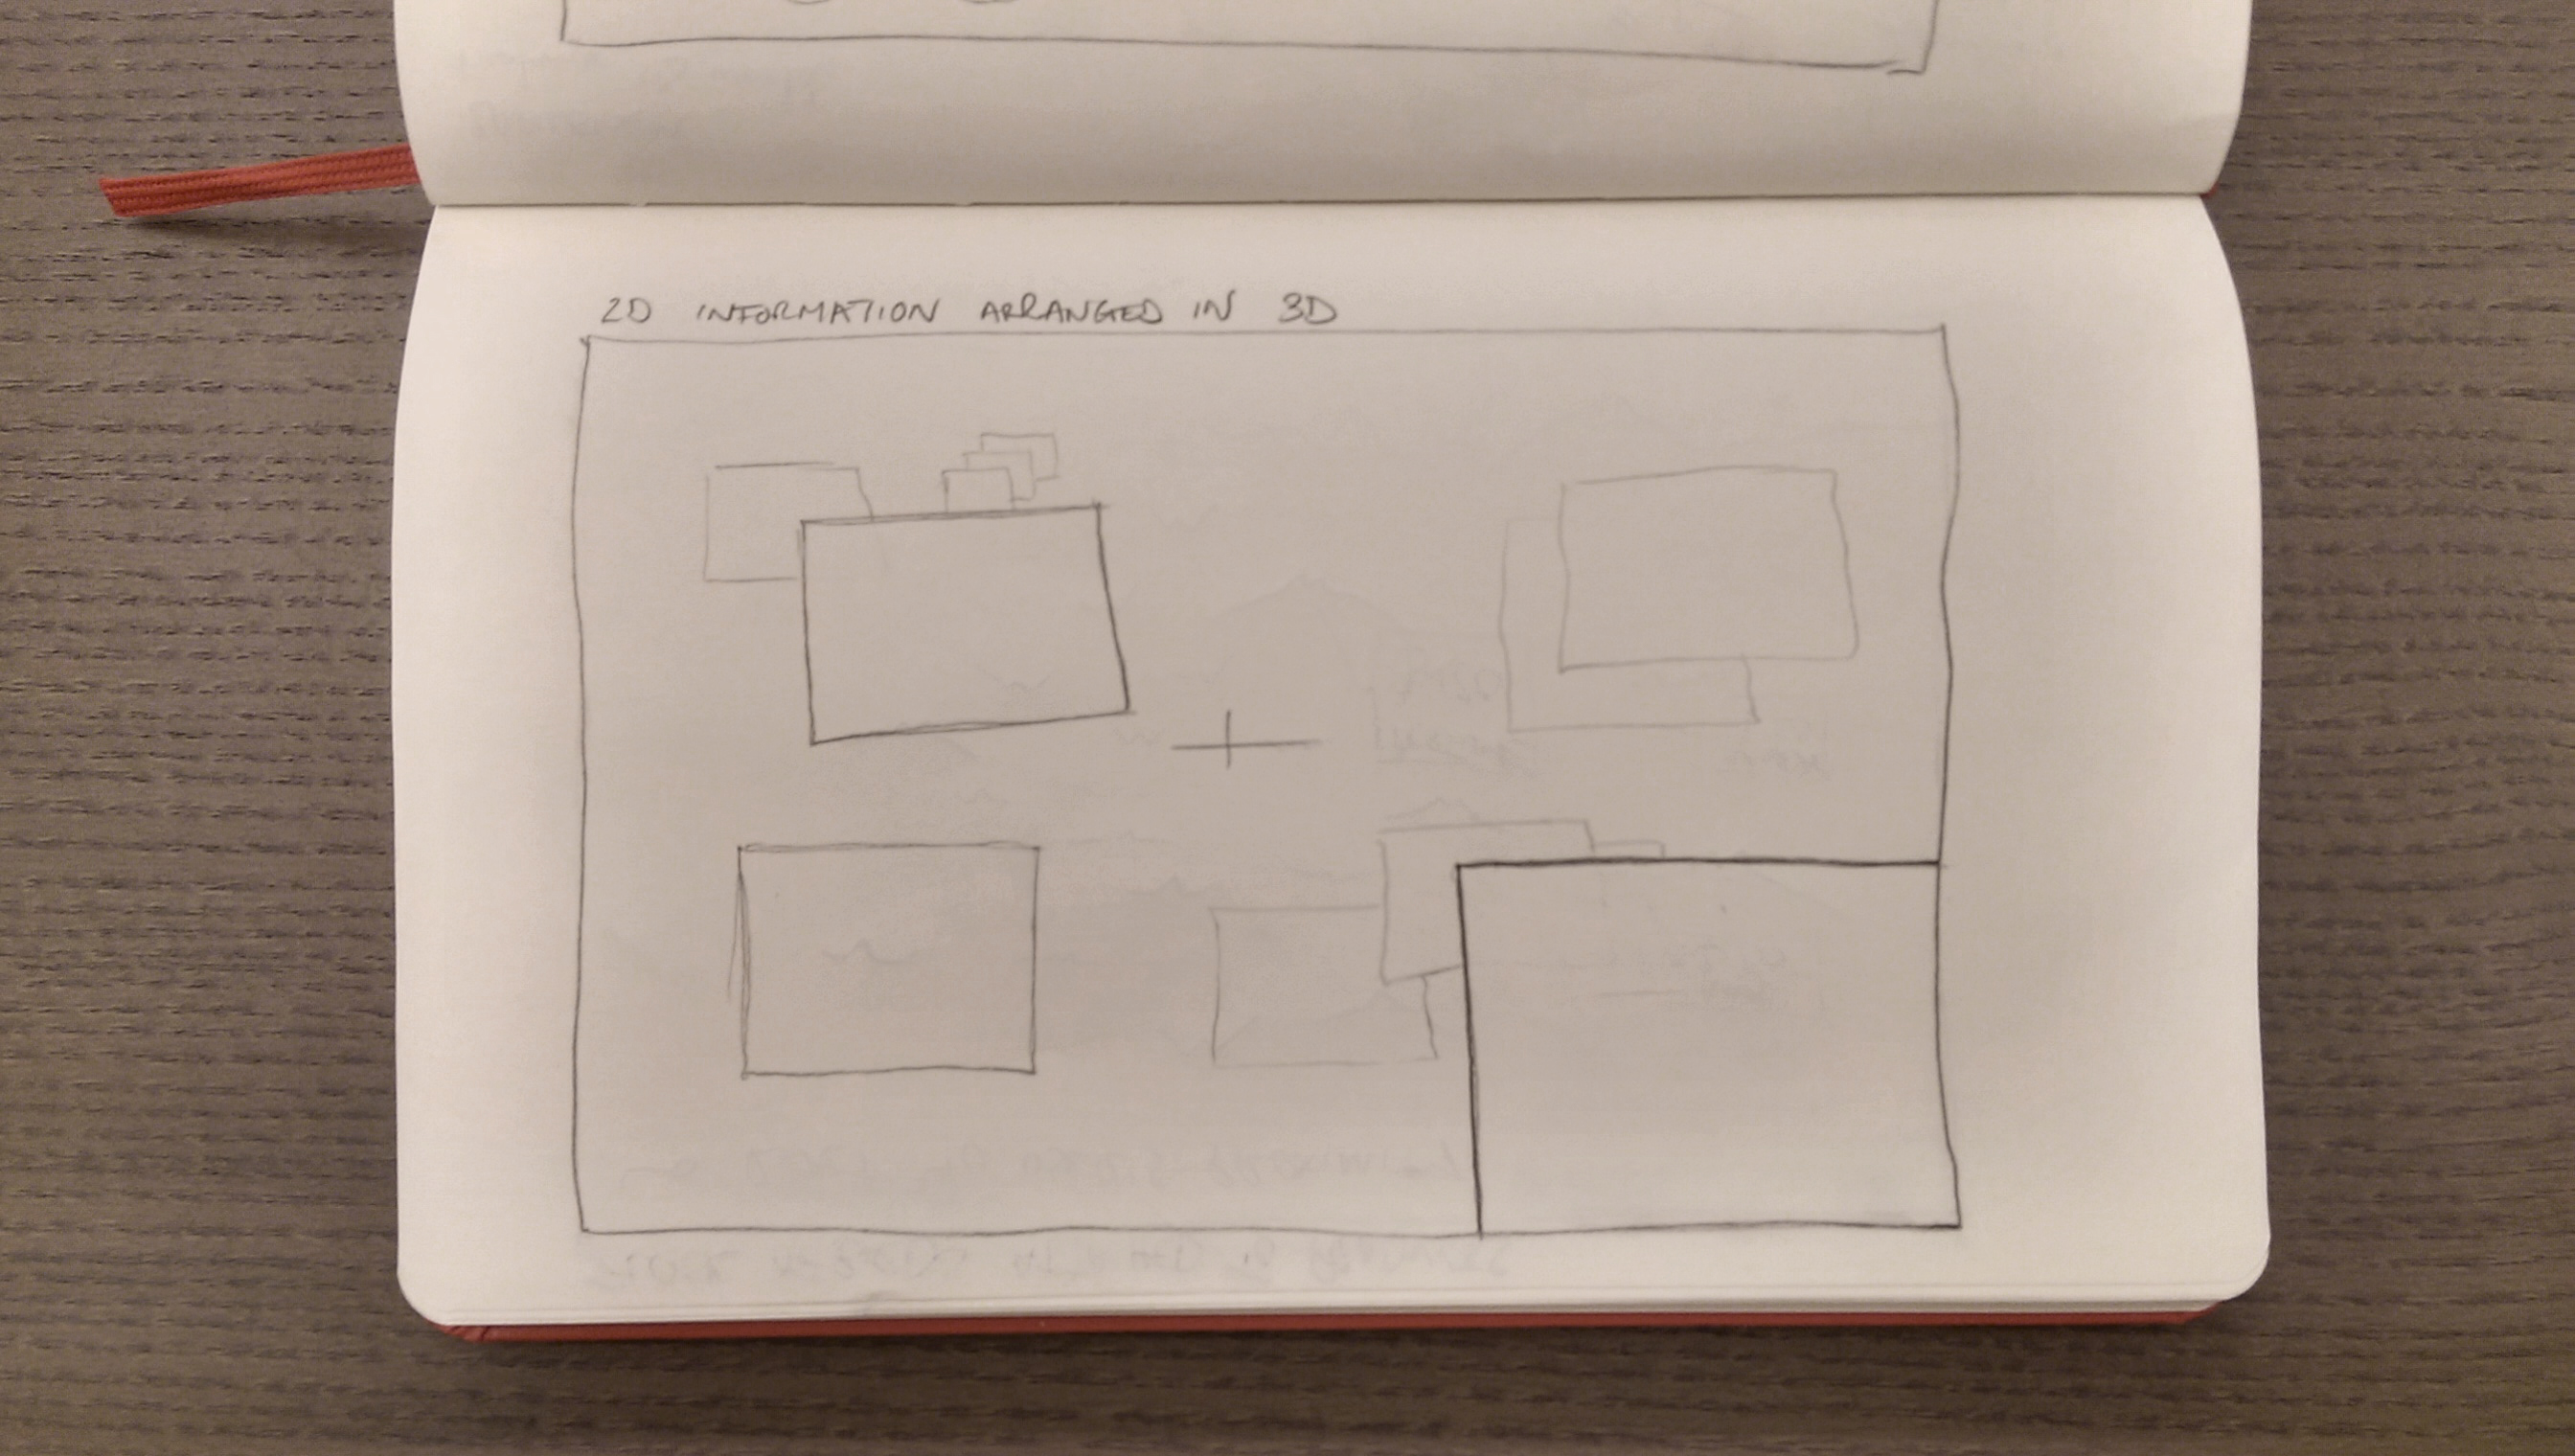 2D INFORMATION ARRANGED IN 3D